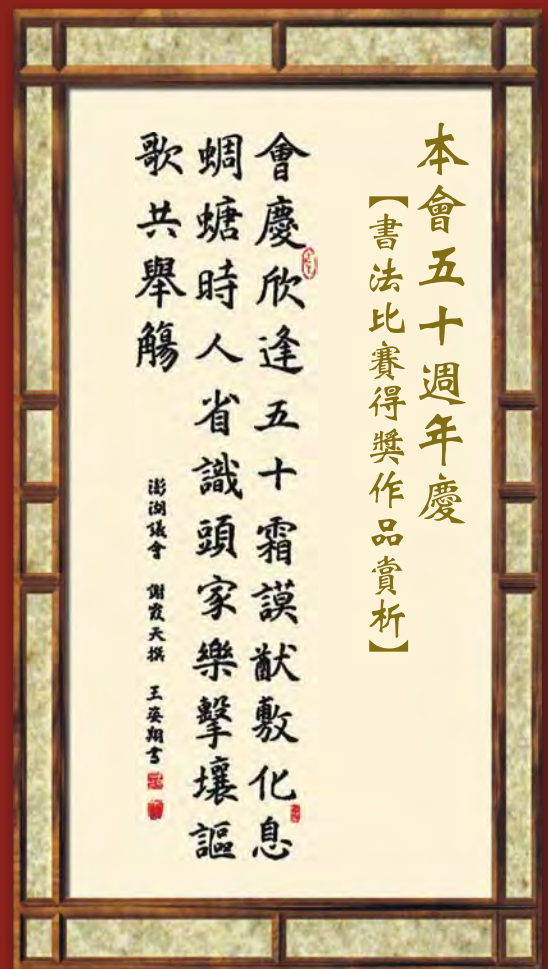 本會五十週年慶
【書法比賽得獎作品賞析】
會慶欣逢五十霜謨猷敷化息
蜩螗時人省識頭家樂擊壤謳
歌共舉觴
澎湖議會 謝霞天撰 王姿翔書